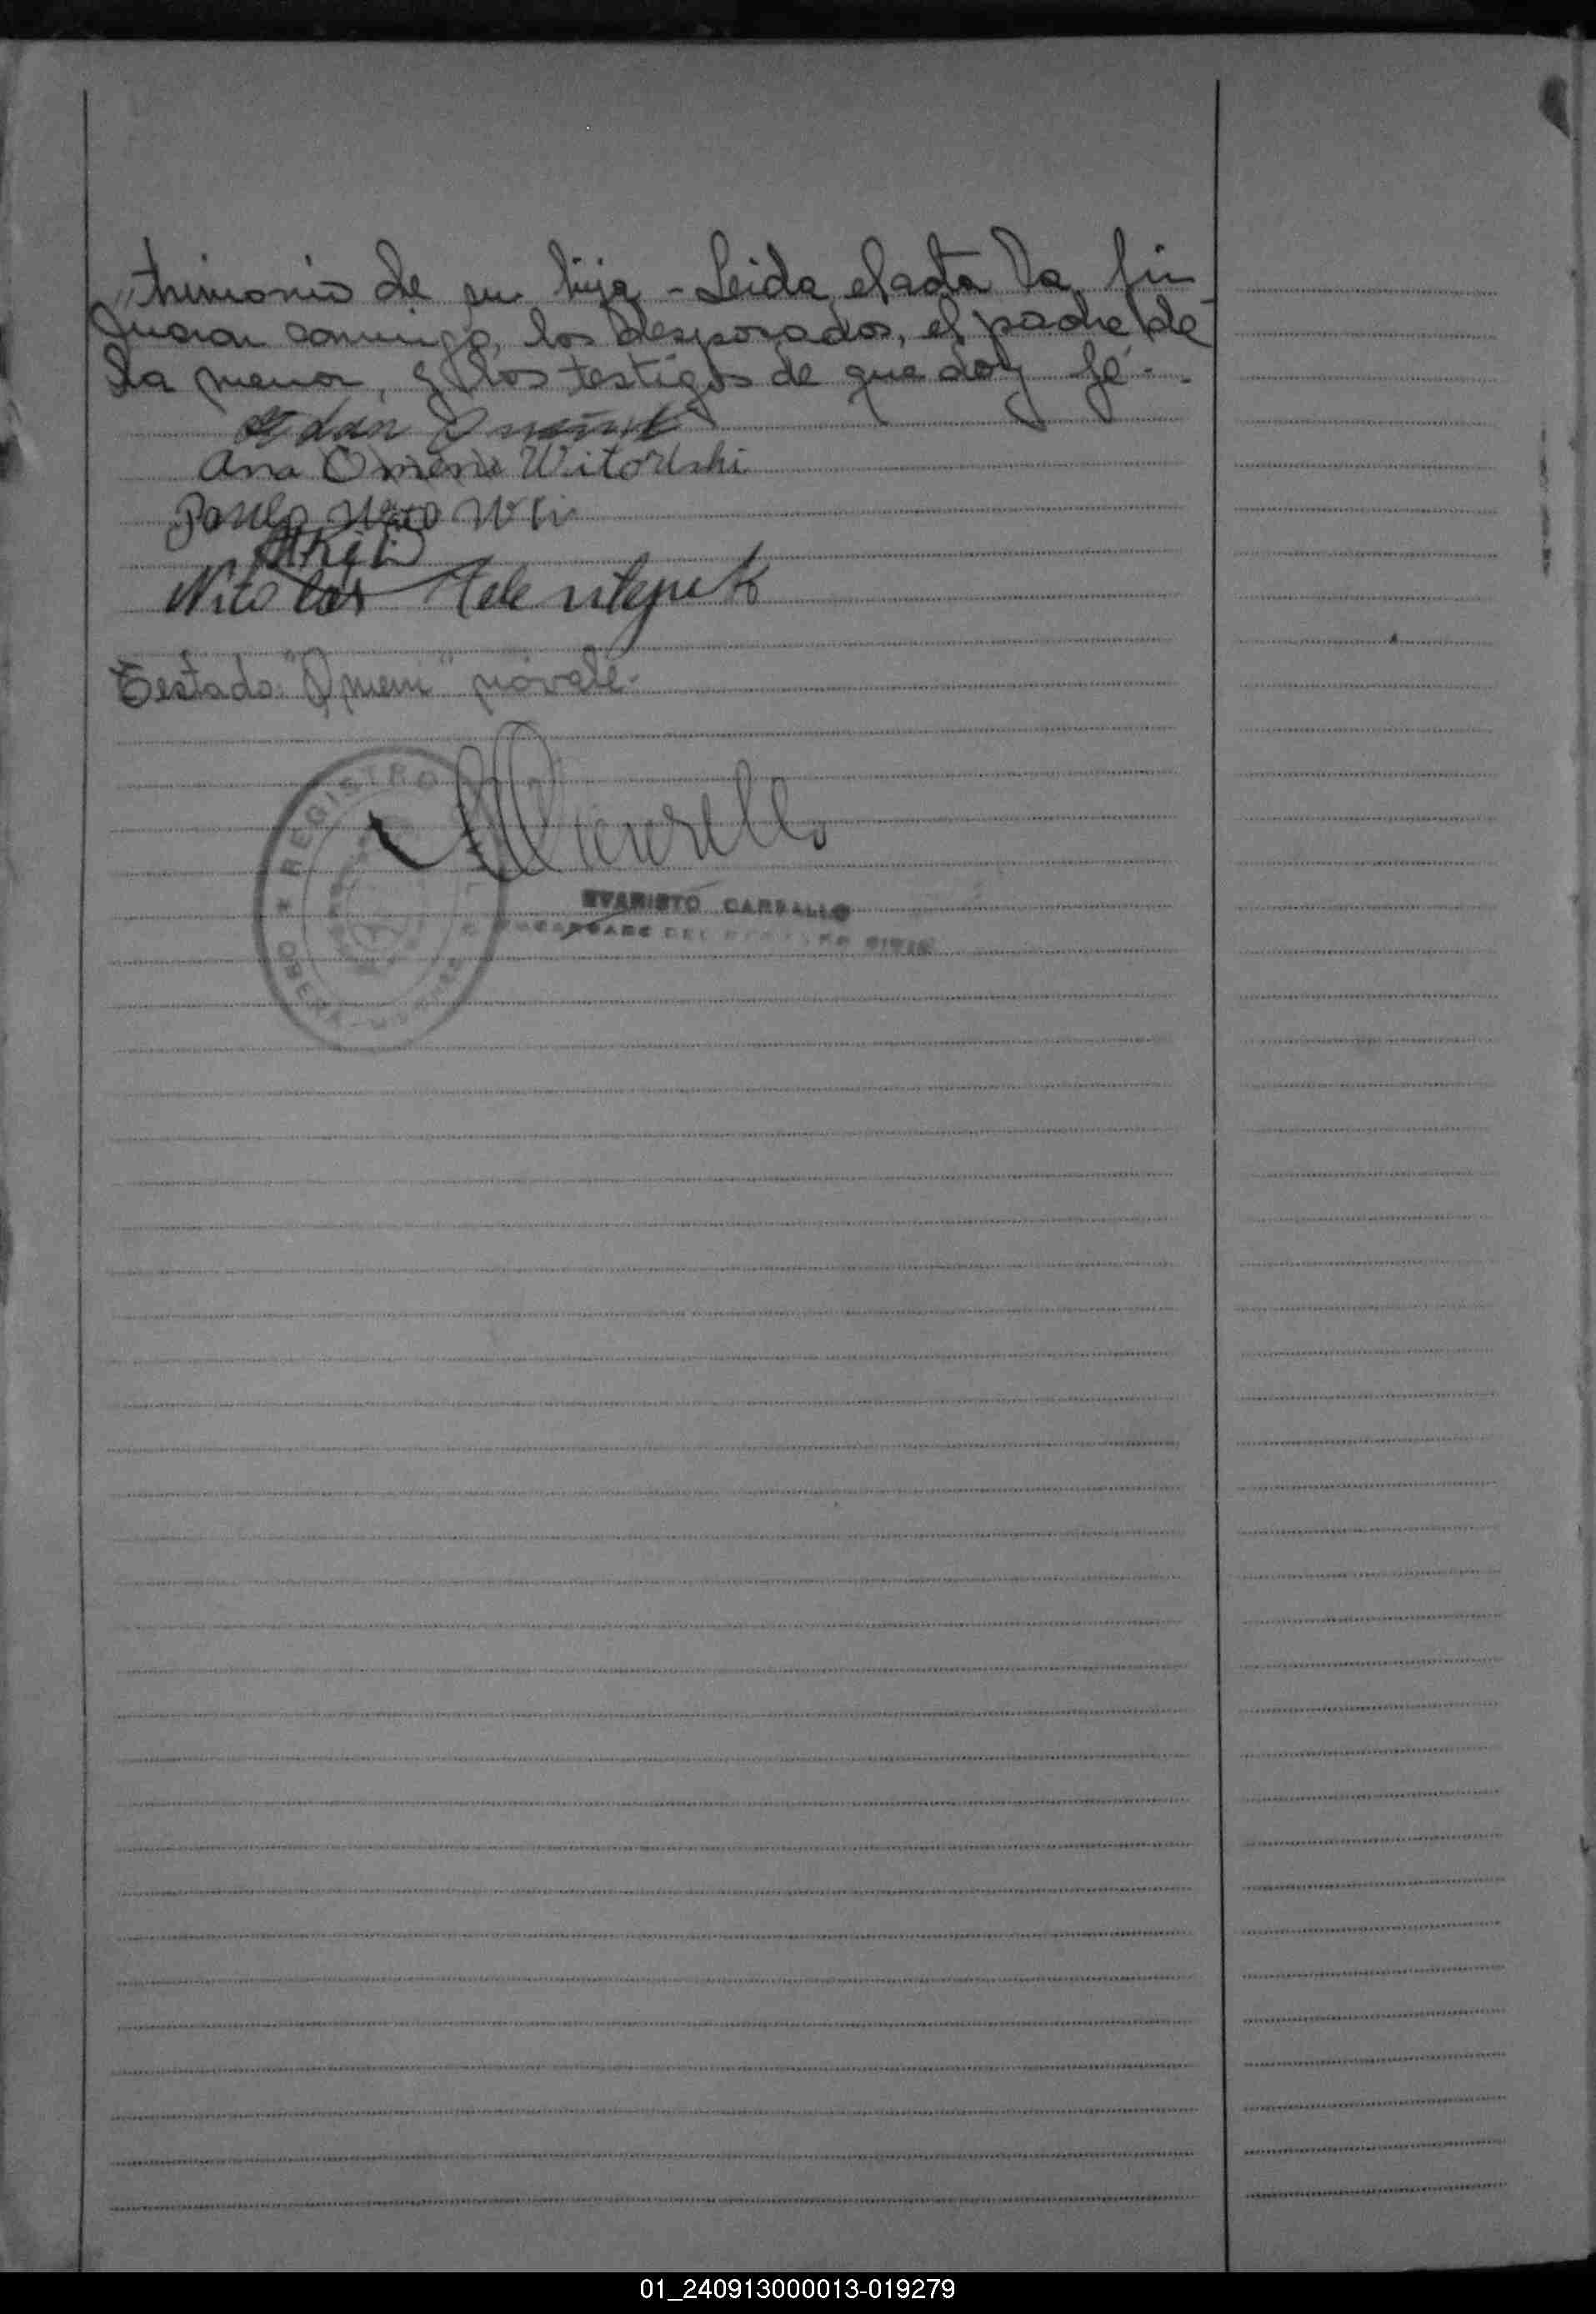 trimonio de su hija - Leida el acta la fir
maron conmigo, los desposados, el padre de
la menor, y los testigos de que doy fé -.
Adan
Ana Omeñe Witorski
Pablo
Nicolas
Testado: "Omeni" no vale-
REGISTRO
OBERA - MISIONES
EVARISTO CARBALLO
ENCARGADO DEL REGISTRO CIVIL
01_240913000013-019279